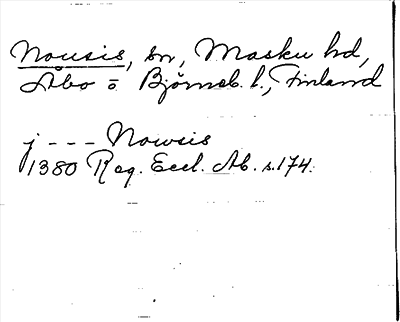 Nousis, sn, Masku hd,
Åbo o. Björneb. l., Finland
j - - - Nowsis
1380 Reg. Eccl. Ab. s. 174.